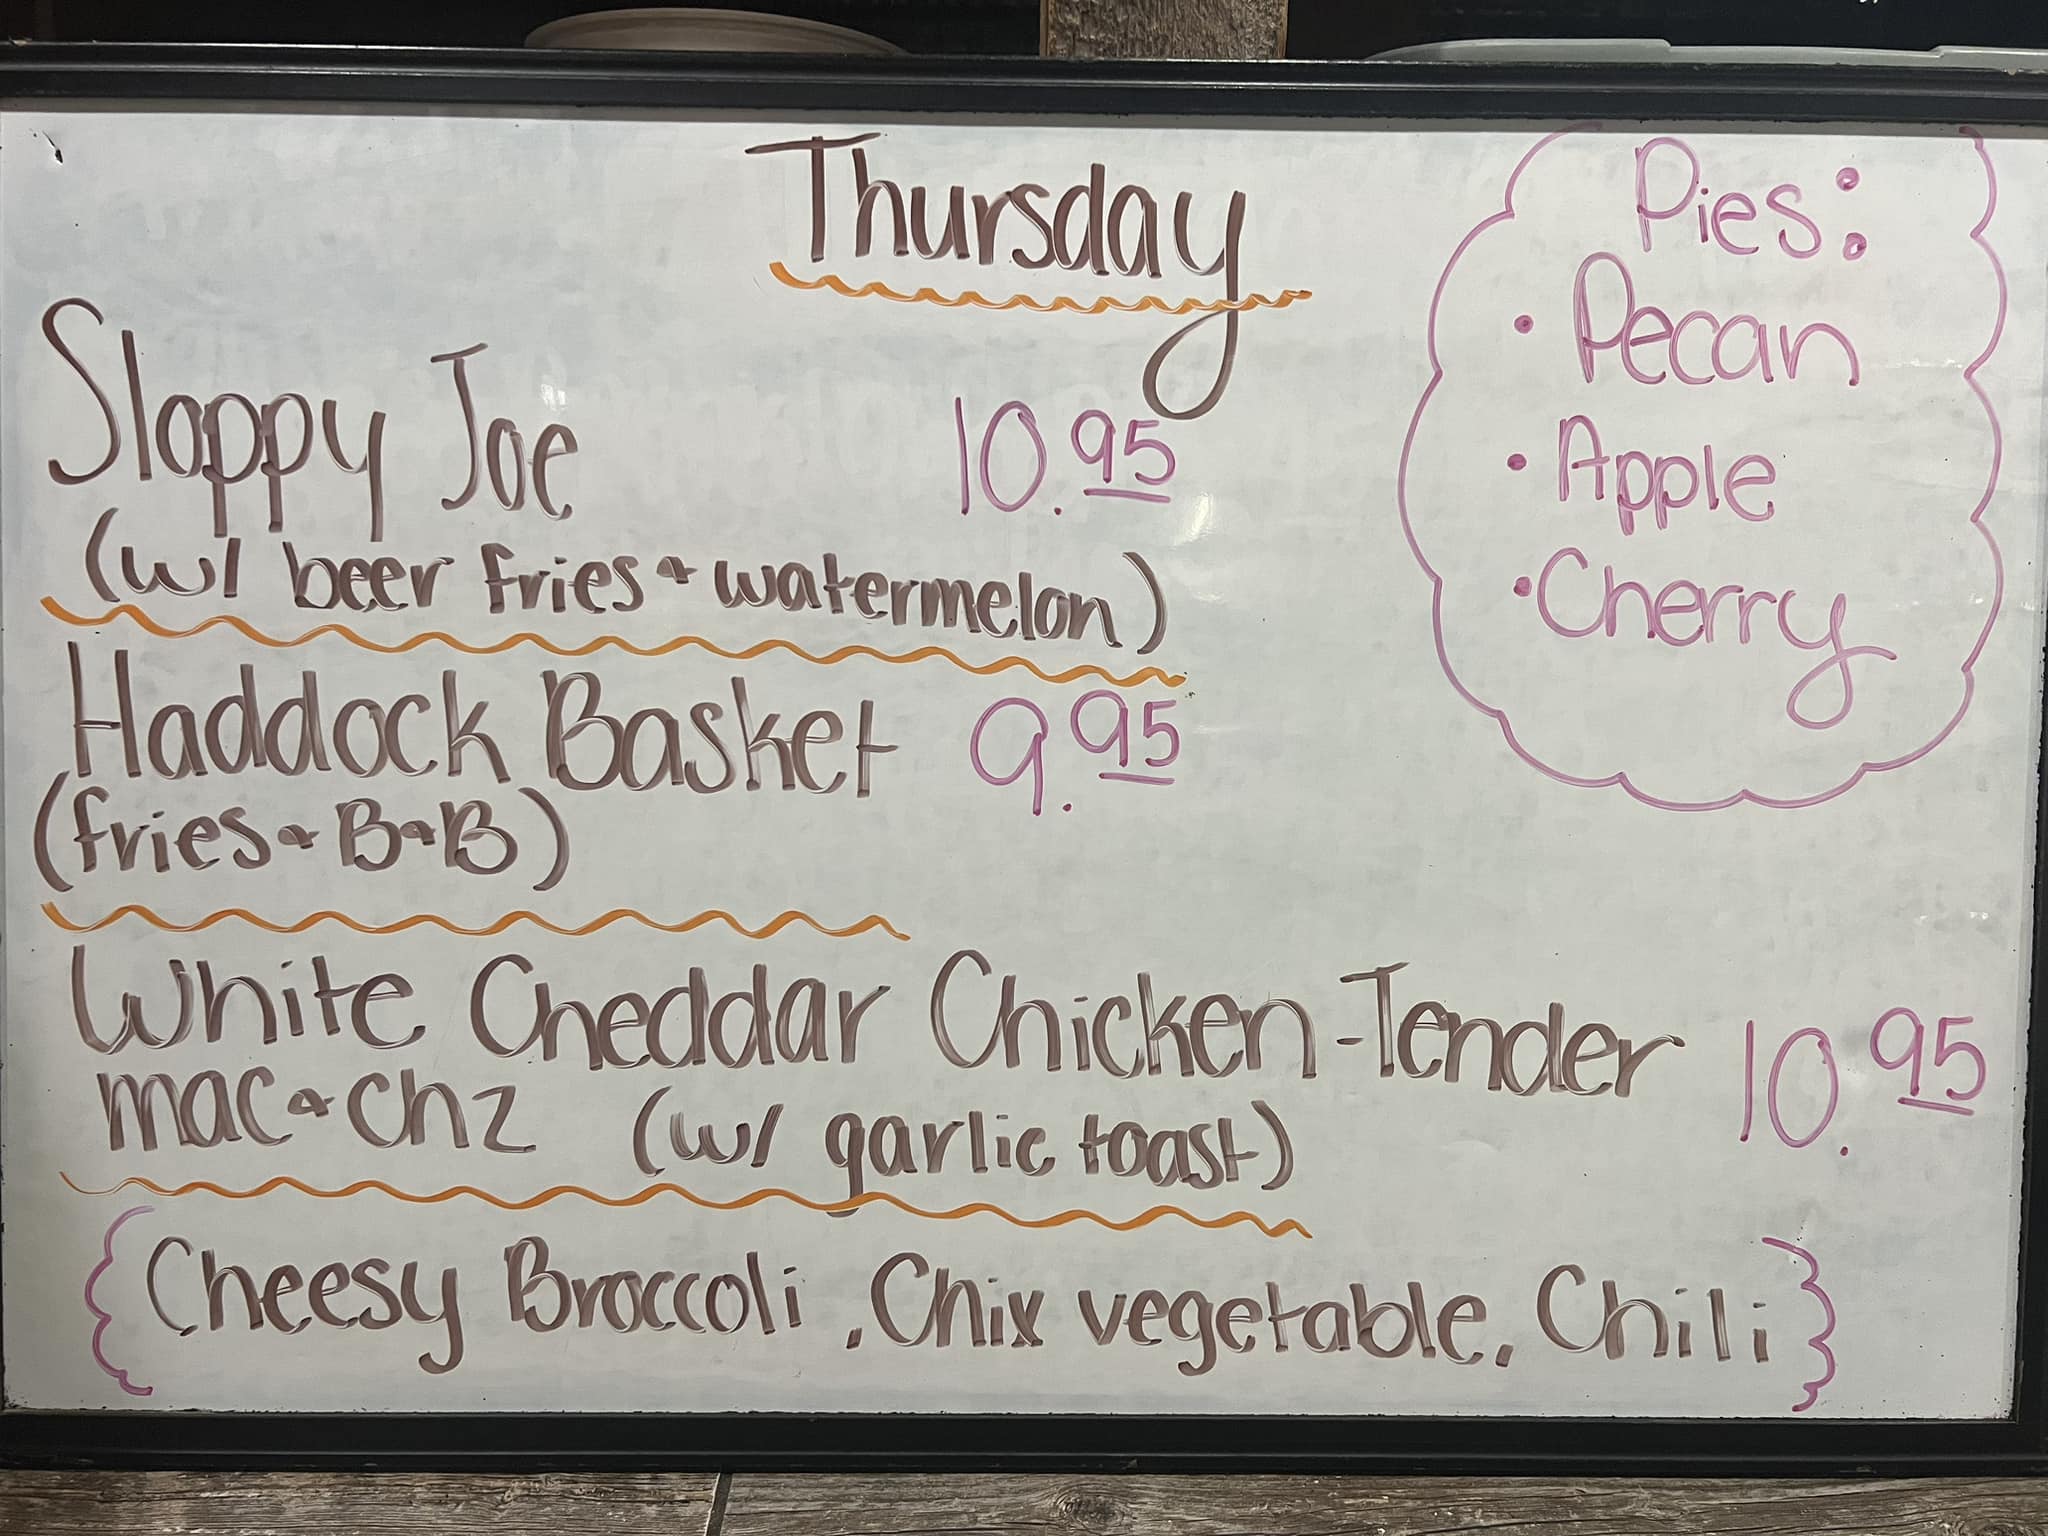 Thursday
Sloppy Joe 10.95
(w/ beer fries & watermelon)
Haddock Basket 9.95
(fries & B&B)
White Cheddar Chicken-Tender 10.95
mac & chz (w/ garlic toast)
Cheesy Broccoli, Chix vegetable, Chili
Pies:
• Pecan
• Apple
• Cherry